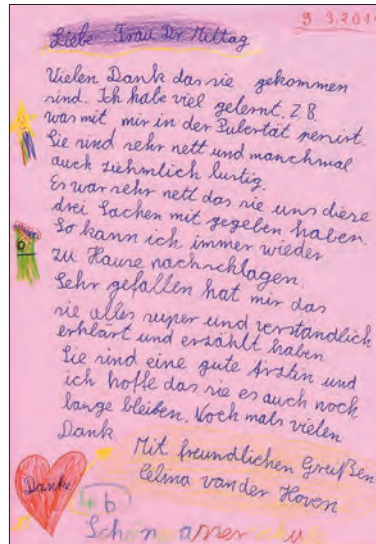 9 3.201
Liebe Frau Dr Mittag
Vielen Dank das sie gekommen
sind. Ich habe viel gelernt. Z B.
was mit mir in der Pubertät persirt.
Sie sind sehr nett und manchmal
auch ziehmlich lustig.
Es war sehr nett das sie uns diese
drei Sachen mit gegeben haben.
So kann ich immer wieder
zu Hause nachschlagen.
Sehr gefallen hat mir das
sie alles super und verständlich
erklärt und erzählt haben
Sie sind eine gute Ärztin und
ich hoffe das sie es auch noch
lange bleiben. Noch mals vielen
Dank
Mit freundlichen Greißen
Celina van der Hoven
Danke
4 b